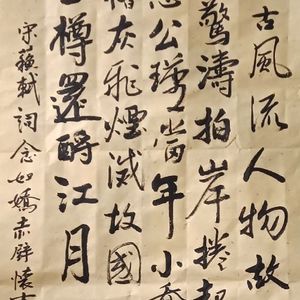 古風流人物故
驚濤拍岸捲起
公瑾當年小喬
灰飛煙滅故國
一樽還酹江月
宋蘇軾詞念奴嬌赤壁懷古